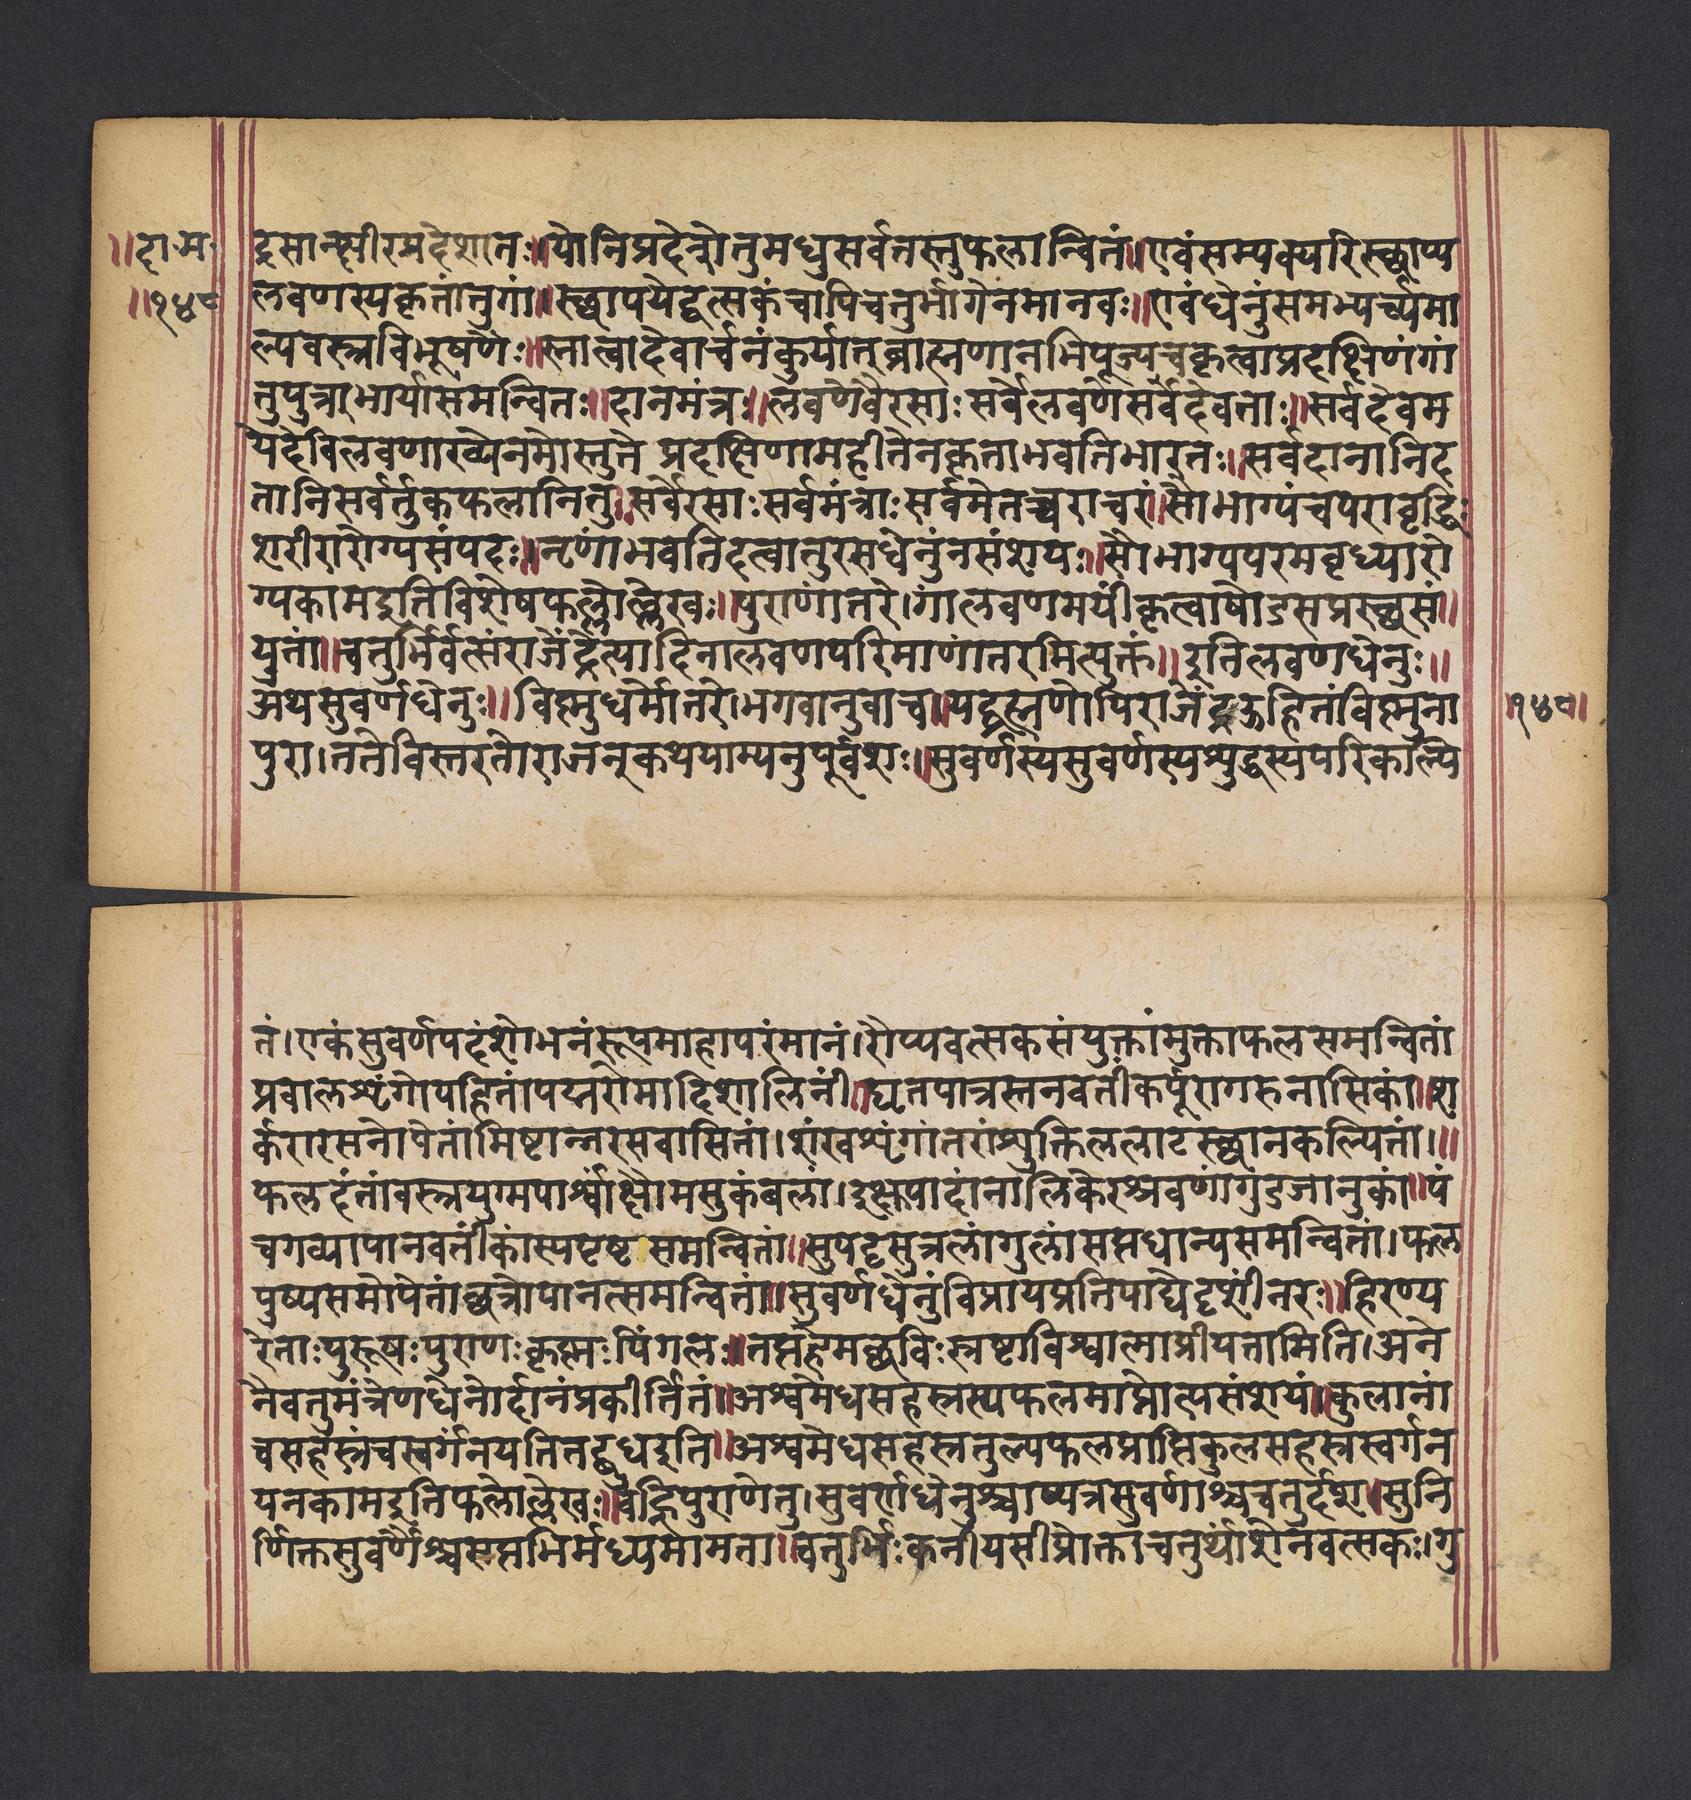 ॥दा॰म॰
॥१४८
द्रसान्क्षीरप्रदेशातः॥योनिप्रदेशेतुमधुसर्वतस्तुफलान्वितं॥एवंसम्यक्यरिस्छाप्य
लवणस्यकृतांतुगां॥स्छापयेद्वत्सकंचापिचतुर्भागेनमानवः॥एवंधेनुंसमभ्यर्च्यमा
ल्यवस्त्रविभूषणैः॥स्नात्वादेवार्चनंकुर्यात्ब्राह्मणानभिपूज्यचकृत्वाप्रदक्षिणंगां
तुपुत्राभार्यासमन्वितः॥दानमंत्रः॥लवणेवैरसाः सर्वेलवणेसर्वदेवताः॥सर्वदेवम
येदेविलवणाख्येनमोस्तुते प्रदक्षिणामहीतेनकृताभवतिभारतः॥सर्वदानानिद
तानिसर्वर्तुकफलानितु॥सर्वेरसाःसर्वमंत्राःसर्वमेतच्चराचरं॥सौभाग्यंचपरावृद्धिः
शरीरारोग्यसंपदः॥नृणांभवतिदत्वातुरसधेनुंनसंशयः॥सौभाग्यपरमवृध्यारो
ग्यकामइतिविशेषफलोल्लेखः॥पुराणांतरे।गांलवणमयींकृत्वाषोडसप्रस्छसं॥
युतां॥चतुर्भिर्वत्संराजेंद्रेत्यादिनालवणपरिमाणांतरमित्युक्तं॥इतिलवणधेनुः॥
अथसुवर्णधेनुः॥विह्मुधर्मोत्तरे।भगवानुवाच॥यद्ब्रह्मणोपिराजेंद्रव्याहितंविह्मुना
पुरा।तत्तेविस्तरतोराजन्कथयाम्यनुपूर्वशः॥सुवर्णस्यसुवर्णस्यश्युद्धस्यपरिकल्पि
॥१४८॥
तं।एकंसुवर्णपदंशोभनंरूपमाहापरंमानं।रौप्यवत्सकसंयुक्तांमुक्ताफलसमन्वितां
प्रवालश्रृंगोपहितांपद्मरोमादिशालिनीं॥घृतपात्रस्तनवतींकर्पूरागरुनासिकां॥श
र्करारसनोपेतांमिष्टान्नरसवासितां।शंखश्रृंगांतरांश्युक्तिललाटस्छानकल्पितां।॥
फलदंतांवस्त्रयुग्मपार्श्वांक्षौमसुकंबलां।इक्षुपादांनालिकेरश्रवणांगुडजानुकां॥पं
चगव्यापानवतींकांस्यपृष्टसमन्वितां॥सुपट्टसुत्रलांगुलांसप्तधान्यसमन्वितां।फल
पुष्पसमोपेतांछत्रोपानत्समन्वितां॥सुवर्णधेनुंविप्रायप्रतिपाद्येदृशींनरः॥हिरण्य
रेताःपुरूषःपुराणःकृह्मःपिंगलः॥तप्तहेमछविःस्त्रष्टाविश्वात्माप्रीयतामिति।अने
नैवतुमंत्रेणधेनोर्दानंप्रकीर्तितं॥अश्वमेधसहस्त्रस्यफलमाप्नोत्यसंशयं॥कुलानां
चसहस्त्रंचस्वर्गंनयतितद्बुधइति॥अश्वमेधसहस्त्रतुल्यफलप्राप्तिकुलसहस्त्रस्वर्गन
यनकामइतिफलोल्लेखः॥वह्निपुराणेतु।सुवर्णधेनुश्चाप्यत्रसुवर्णाश्चचतुर्दश॥सुनि
र्णिक्तसुवर्णैश्चसप्तभिर्मध्यमामता॥चतुर्भिःकनीयसीप्रोक्ताचतुर्थांशेनवत्सकः।गु